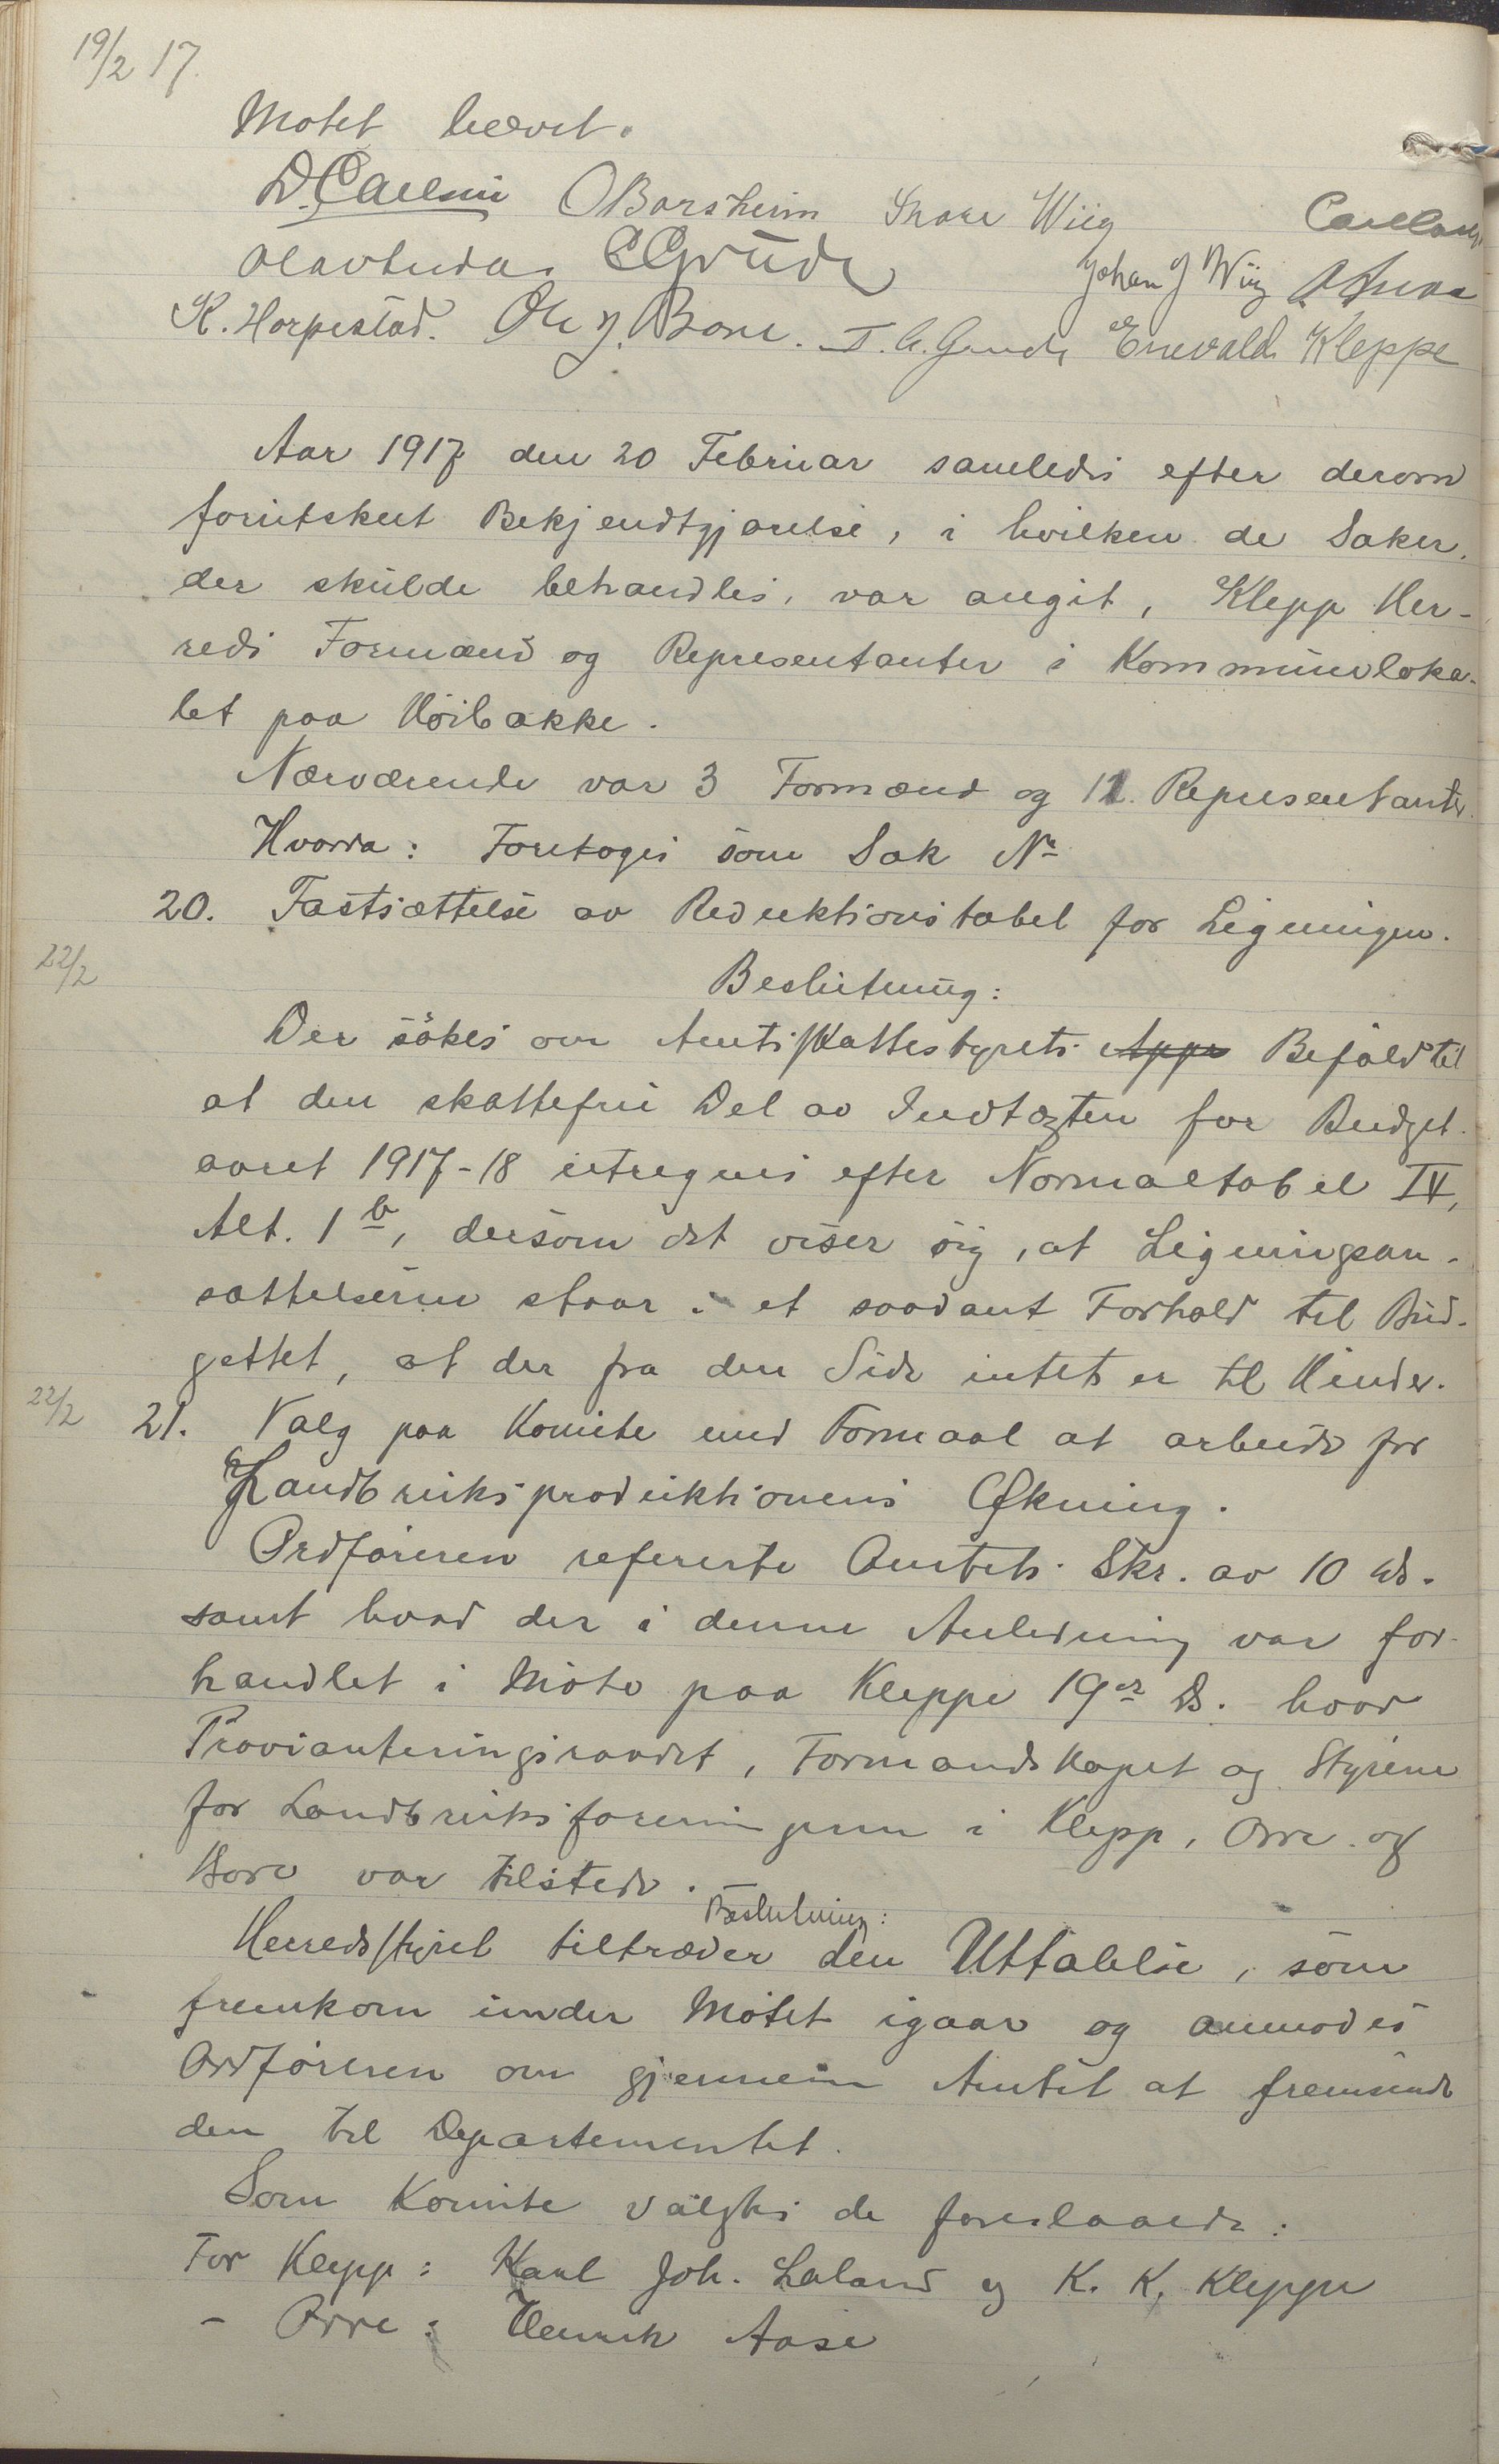 19/2 17.
Møtet hævet.
O Borsheim Snare Wiig
Johan J Wiig
K. Horpestad. Ole J. Bore. T. A. Grude Enevald Kleppe
Aar 1917 den 20 Februar samledes efter derom
forutskut Bekjendtgjørelse, i hvilken de Saker,
der skulde behandles, var angit, Klepp Her-
reds Formænd og Repræsentanter i Kommunloka-
let paa Høibakke.
Nærværende var 3 Formænd og 11. Repræsentanter.
Hvorda: Foretoges som Sak Nr
20. Fastsættelse av Reduktionstabel for Ligningen.
22/2
Beslutning:
Der søkes om Amtsskattestyrets Appr Bifald til
at den skattefrie Del av Indtægten for Budget-
aaret 1917-18 utregnes efter Normaltabel IV,
Alt. 1 b, dersom det viser sig, at Ligningsan-
sættelserne staar i et saadant Forhold til Bud-
gettet, at der fra den Side intet er til Hinder.
22/2
21. Valg paa Komite med Formaal at arbeide for
Landbruksproduktionens Økning.
Ordføreren refererte Amtets Skr. av 10 ds.
samt hvad der i denne Anledning var for-
handlet i Møte paa Kleppe 19de ds. hvor
Provianteringsraadet, Formandskapet og Styrerne
for Landbruksforeningerne i Klepp, Orre og
Bore var tilstede.
Beslutning:
Herredsstyret tiltræder den Uttalelse, som
fremkom under Møtet igaar og anmodes
Ordføreren om gjennem Amtet at fremsende
den til Departementet.
Som Komite valgtes de foreslaaede:
For Klepp: Karl Joh. Laland og K. K. Kleppe
- Orre: Henrik Aase